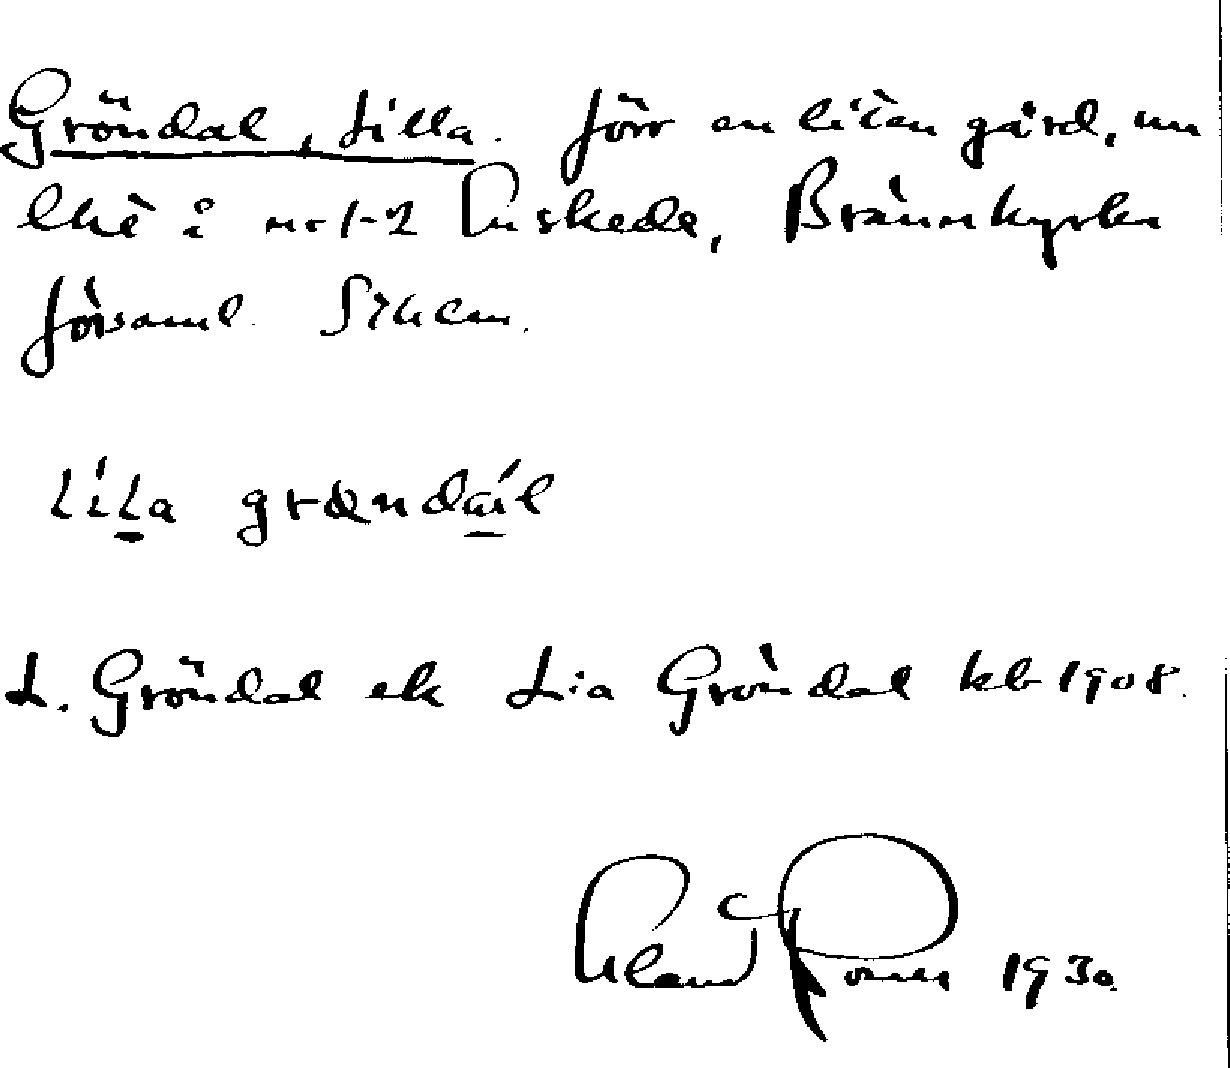 Gröndal, Lilla. förr en liten gård, nu
lht i nr 1-2 Enskede, Brännkyrka
församl. Sthlm.
lila grøndal
L. Gröndal ek Lia Gröndal kb 1908.
1930